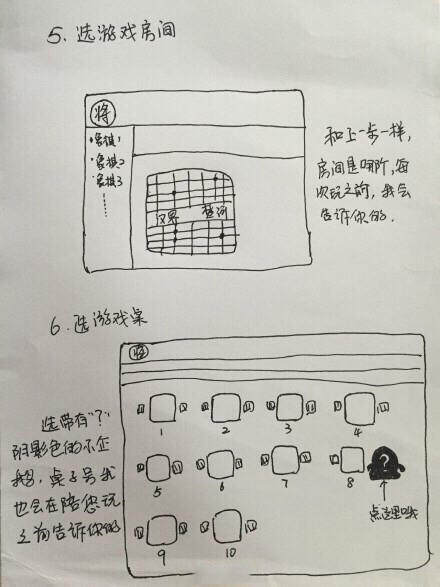 5. 选游戏房间
将
象棋1
象棋2
象棋3
……
汉界 楚河
和上一步一样,
房间是哪所,每
次玩之前,我会
告诉你的.
6. 选游戏桌
选带有"?"
阴影色的小企
鹅,桌子号我
也会在陪您玩
之前告诉你的
将
1 2 3 4
5 6 7 8
?
点这里哦
9 10